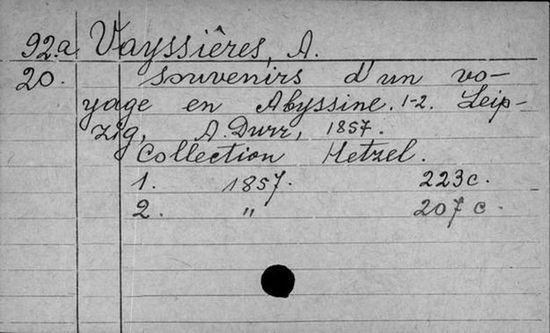 92a Vayssières, A.
20. Souvenirs d'un vo-
yage en Abyssine. 1-2. Leip-
zig, A. Durr, 1857.
Collection Hetzel.
1. 1857. 223c.
2. " 207c.